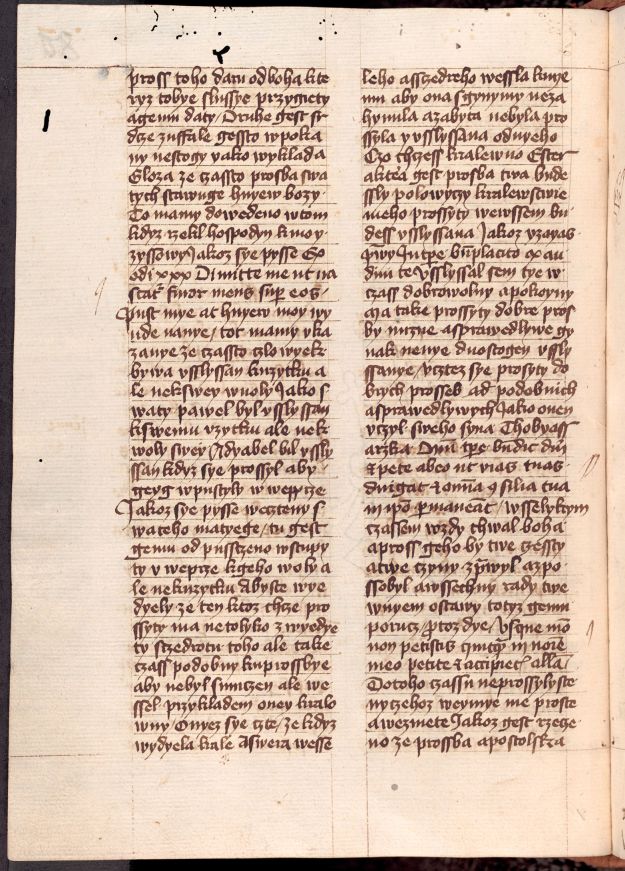 pross toho daru od boha kte
ryz tobye slussye przygiety
a gemu daty / Druhe gest sr
dze zuffale gessto w poka
ny nestogy yakoz wyklada
Gloza ze czasto prosba swa
tych stawuge hnyew bozy
To mamy dowedeno w tom
kdyz rzekl hospodyn k moy
zyssowy Jakoz sye pysse Ex
odi xxx Dimitte me ut ira
scat furor meus sup eos
Pust mye at hnyew moy wy
nde nanye / tot mamy uka
zanye ze czasto czlowyek
bywa vsslyssan k uzytku a
le nekswey wuoly Jako s
waty pawel byl vsslyssan
k swemu vzytku ale nek
woly swey A dyabel bil vssly
ssan kdyz sye prossyl aby
gey gwpustyly w weprze
Jakoz sye pysse w cztenys
wateho matyege / tu gest
gemu od pussczeno wstupy
ty v weprze k geho woly a
le nekuzytku Abyste wye
dyely ze ten ktoz chze pro
ssyty ma netolyko z wyedye
ty sczedrotu toho ale take
czass podobny ku prossbye
aby nebyl smuczen ale we
ssel przykladem oney kralo
wny / Onyez sye czte / ze kdyz
wydyela krale Aswera wesse
leho a sczedreho wessla k nye
mu aby ona s gynymy neza
hynula a zabyta nebyla pro
ssyla y vsslyssana od nyeho
Czo chczess kralewno Ester
ak tea gest prosba twa bude
ssly polowyczy kralewstwie
meho prossyty we wssem bu
dess vsslyssana Jakoz vzayas
prwy In tpe bnplacito ex au
diui te Vsslyssal sem tye w
czass dobrowolny a pokoyny
Ma take prossyty dobre pros
by nuzne a sprawedlywe gy
nak nenye duostogen vssly
ssanye / vcztez sye prosyty do
brych prosseb ad podobnich
a sprawedlywych Jako onen
vczyl sweho syna Thobyass
arzka Omi tpe bndic dm
& pete ab eo ut vias tuas
dirigat & omia 9silia tua
in ipo pmaneat / w sselyktym
czassem wzdy chwal boha
a pross geho by twe czessty
a twe czyny zprwyl a zpo
ssobyl a wssechny rady twe
w nyem ostawy totyz gemu
porucz / protoz dye / Vsque mo
non petistis quicq in noie
meo petite & accipiet alla /
Do toho czassu neprossylyste
nyczehoz we ymye me proste
a wezmete Jakoz gest rzecze
no ze prossba apostolska